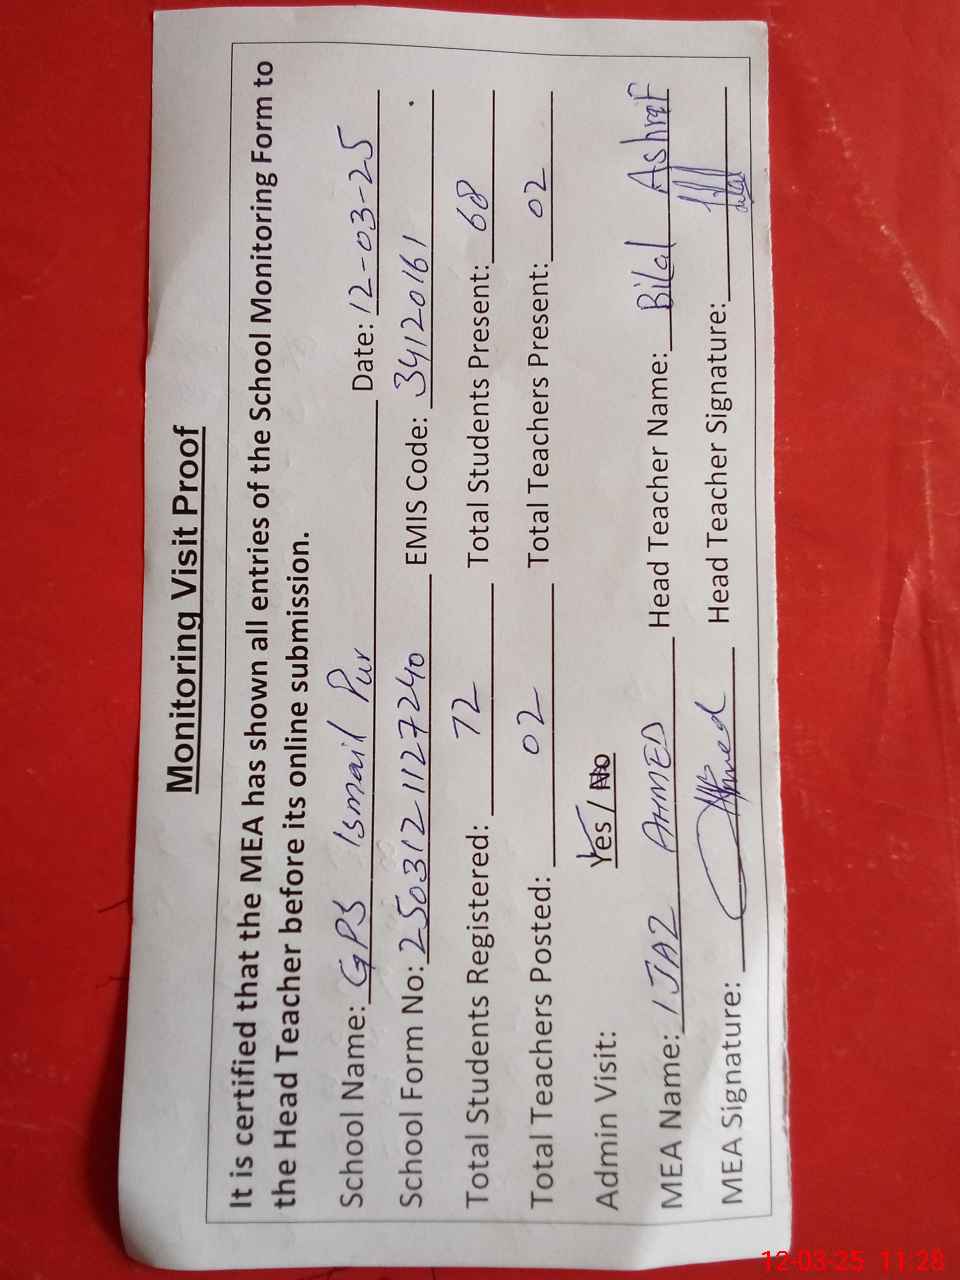 Monitoring Visit Proof
It is certified that the MEA has shown all entries of the School Monitoring Form to
the Head Teacher before its online submission.
School Name: GPS Ismail Pur Date: 12-03-25
School Form No: 2503121127240 EMIS Code: 34120161
Total Students Registered: 72 Total Students Present: 68
Total Teachers Posted: 02 Total Teachers Present: 02
Admin Visit: Yes / No
MEA Name: IJAZ AHMED Head Teacher Name: Bilal Ashraf
MEA Signature: Ahmed Head Teacher Signature:
12-03-25 11:28